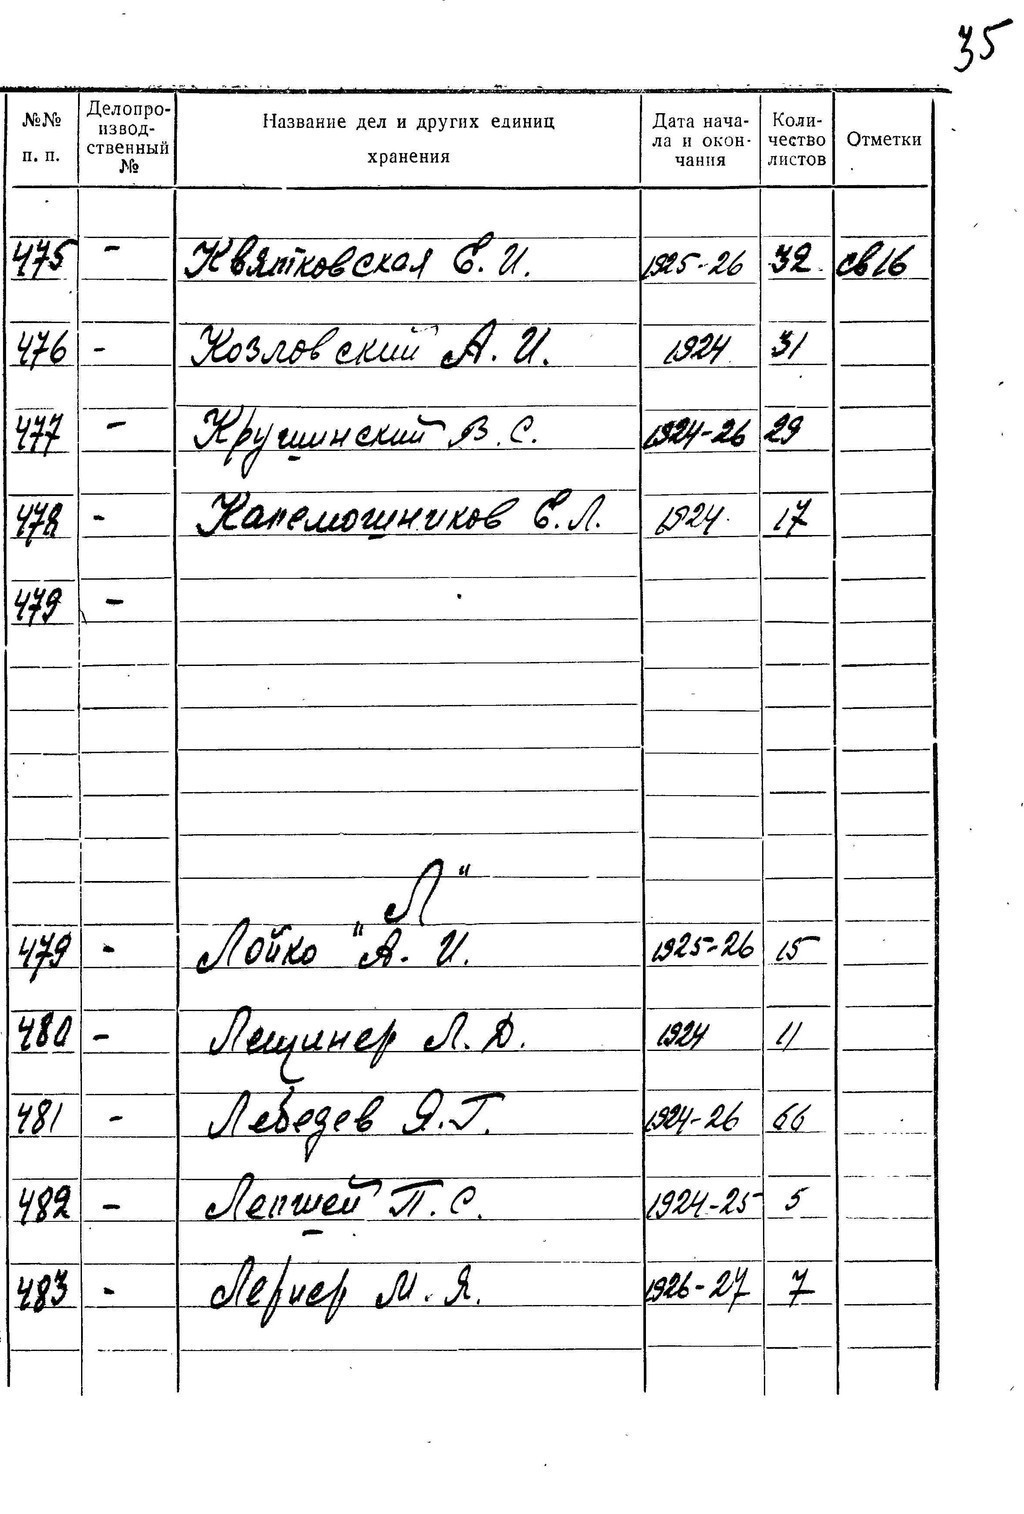 35
№№ п. п. Делопроизводственный № Название дел и других единиц хранения Дата начала и окончания Количество листов Отметки
475 - Квятковская Е. И. 1925-26 32 св 16
476 - Козловский А. И. 1924 31
477 - Крушинский В. С. 1924-26 29
478 - Капемошников Е. Л. 1924 17
479 -
"Л"
479 - Лойко А. И. 1925-26 15
480 - Лещинер Л. Д. 1924 11
481 - Лебедев Я. Г. 1924-26 66
482 - Лепшей П. С. 1924-25 5
483 - Лернер М. Я. 1926-27 7